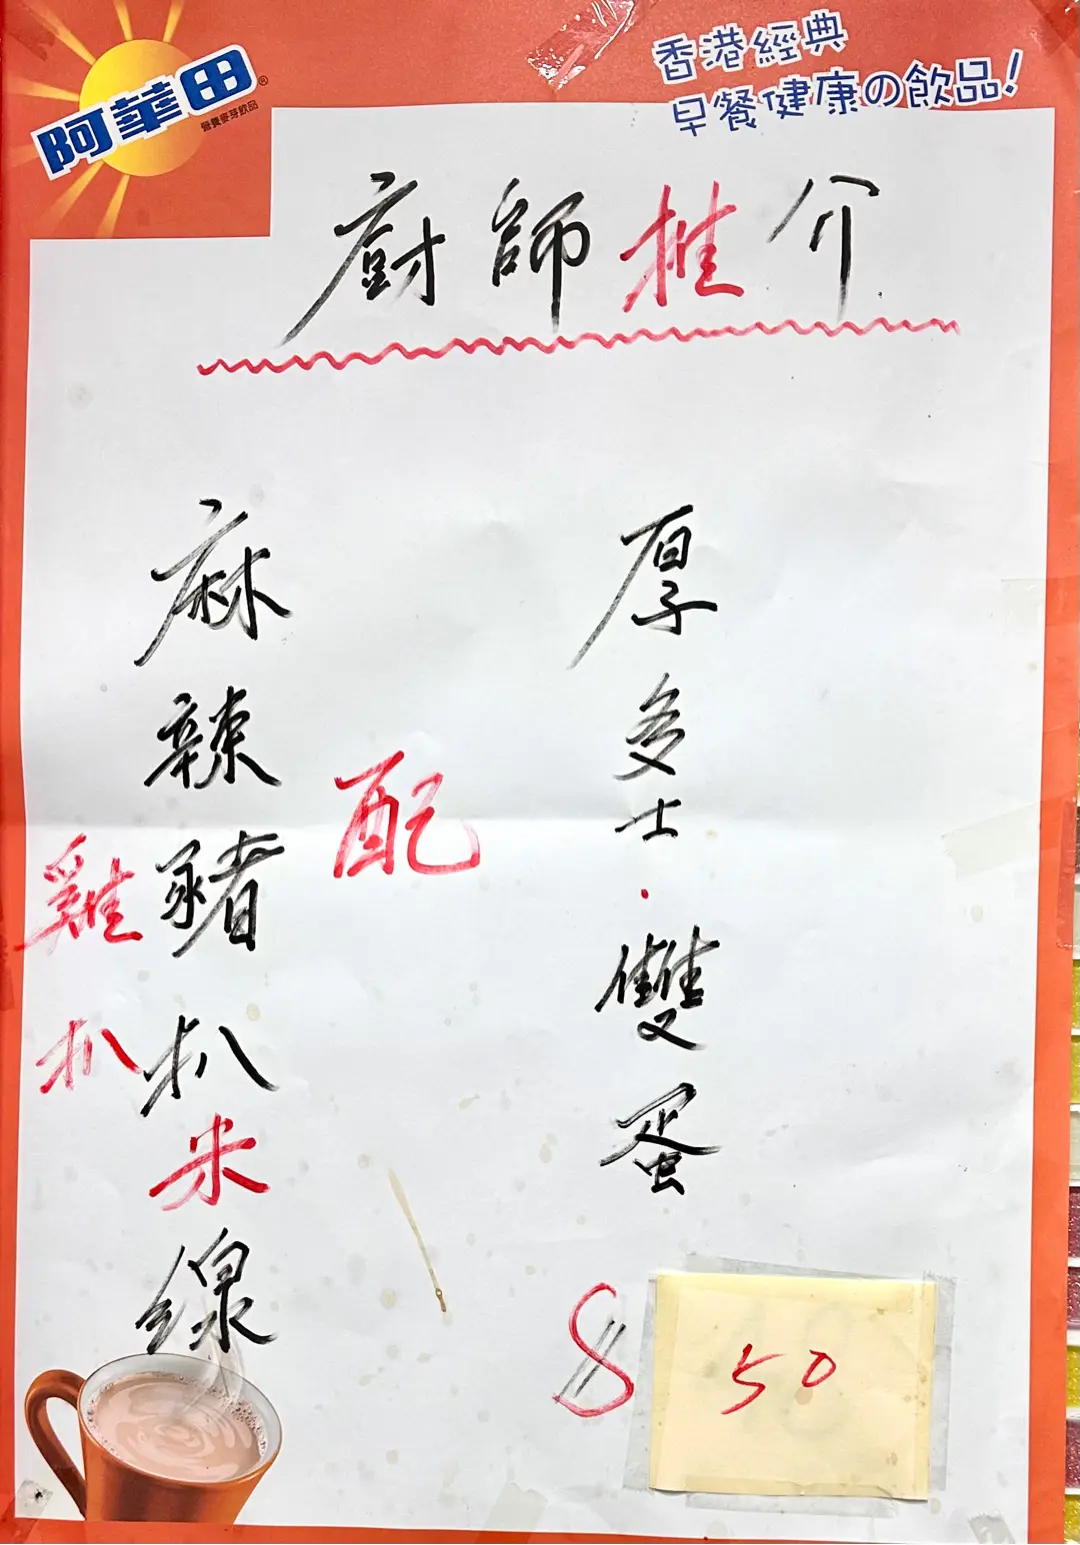 阿華田®
營養麥芽飲品
香港經典
早餐健康の飲品!
廚師推介
麻辣豬扒米線
雞扒
配
厚多士·雙蛋
$50